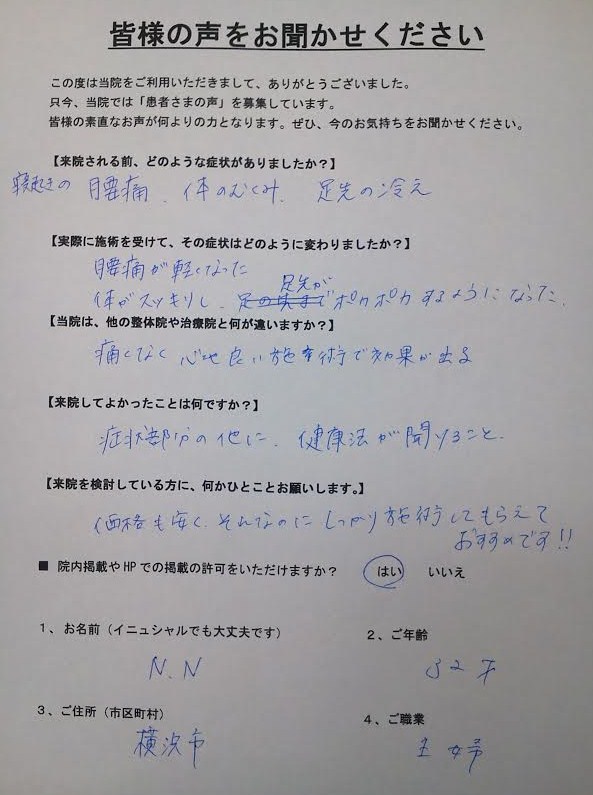 皆様の声をお聞かせください
この度は当院をご利用いただきまして、ありがとうございました。
只今、当院では「患者さまの声」を募集しています。
皆様の素直なお声が何よりの力となります。ぜひ、今のお気持ちをお聞かせください。
【来院される前、どのような症状がありましたか？】
寝起きの 腰痛、体のむくみ、足先の冷え
【実際に施術を受けて、その症状はどのように変わりましたか？】
腰痛が軽くなった
体がスッキリし、足先がポカポカするようになった。
【当院は、他の整体院や治療院と何が違いますか？】
痛くなく心地良い施術で効果が出る
【来院してよかったことは何ですか？】
症状部分の他に、健康法が聞けること。
【来院を検討している方に、何かひとことお願いします。】
価格も安く、それなのにしっかり施術してもらえて
おすすめです!!
■ 院内掲載やHPでの掲載の許可をいただけますか？ はい いいえ
１、お名前（イニュシャルでも大丈夫です） ２、ご年齢
N.N 32才
３、ご住所（市区町村） ４、ご職業
横浜市 主婦